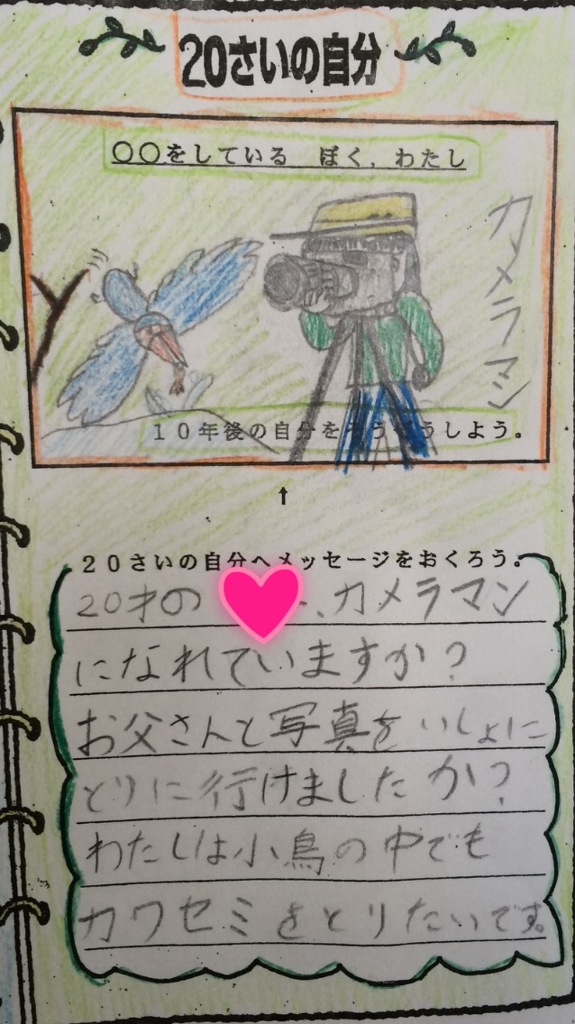 20さいの自分
○○をしている ぼく，わたし
カメラマン
10年後の自分をそうぞうしよう。
↑
20さいの自分へメッセージをおくろう。
20才の 、カメラマン
になれていますか?
お父さんと写真をいしょに
とりに行けましたか?
わたしは小鳥の中でも
カワセミをとりたいです。